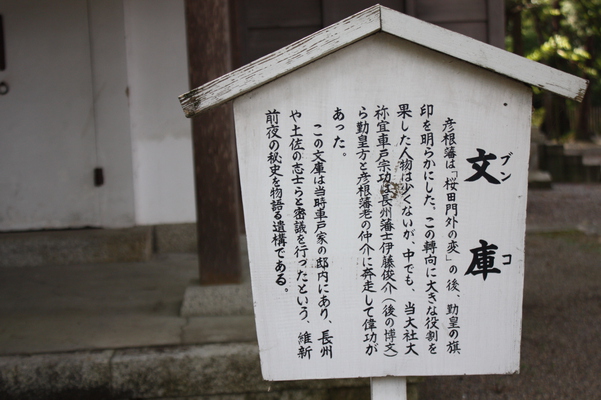 文庫
ブンコ
彦根藩は「桜田門外の変」の後、勤皇の旗
印を明らかにした。この轉向に大きな役割を
果した人物は少くないが、中でも、当大社大
祢宜車戸宗功は長州藩士伊藤俊介(後の博文)
ら勤皇方と彦根藩老の仲介に奔走して偉功が
あった。
この文庫は当時車戸家の邸内にあり、長州
や土佐の志士らと密議を行ったという、維新
前夜の秘史を物語る遺構である。